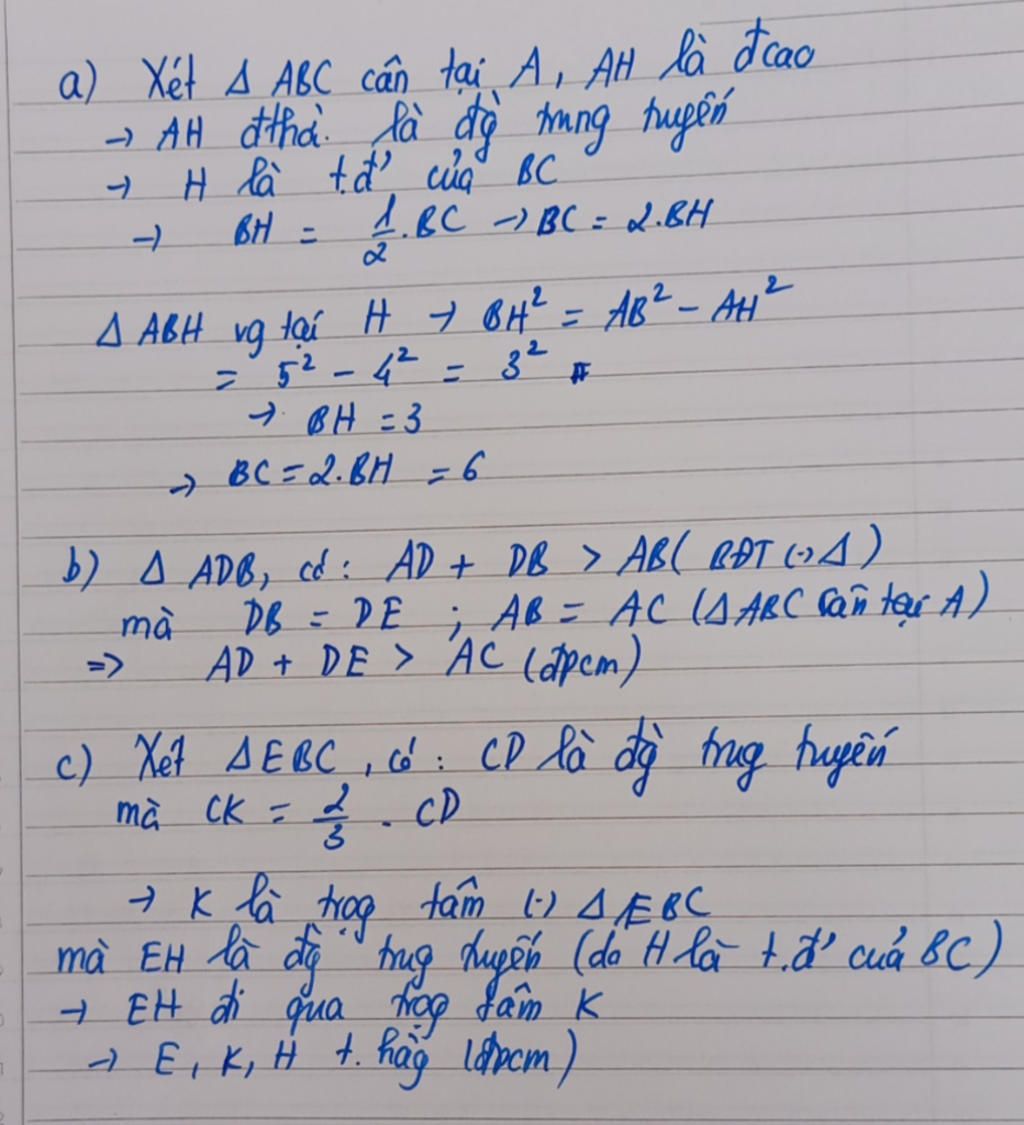 a) Xét Δ ABC cân tại A, AH là đcao
→ AH đthờ. là đg̀ trung tuyến
→ H là t.đ' của BC
→ BH = 1/2 . BC → BC = 2.BH
Δ ABH vg tại H → BH² = AB² - AH²
= 5² - 4² = 3²
→ BH = 3
→ BC = 2.BH = 6
b) Δ ADB, có: AD + DB > AB ( BĐT (·) Δ )
mà DB = DE ; AB = AC (Δ ABC cân tại A)
=> AD + DE > AC (đpcm)
c) Xét Δ EBC, có: CD là đg̀ trug tuyến
mà CK = 2/3 . CD
→ K là trọg tâm (·) Δ EBC
mà EH là đg̀ trug tuyến (do H là t.đ' của BC)
→ EH đi qua trọg tâm K
→ E, K, H t. hàg (đpcm)